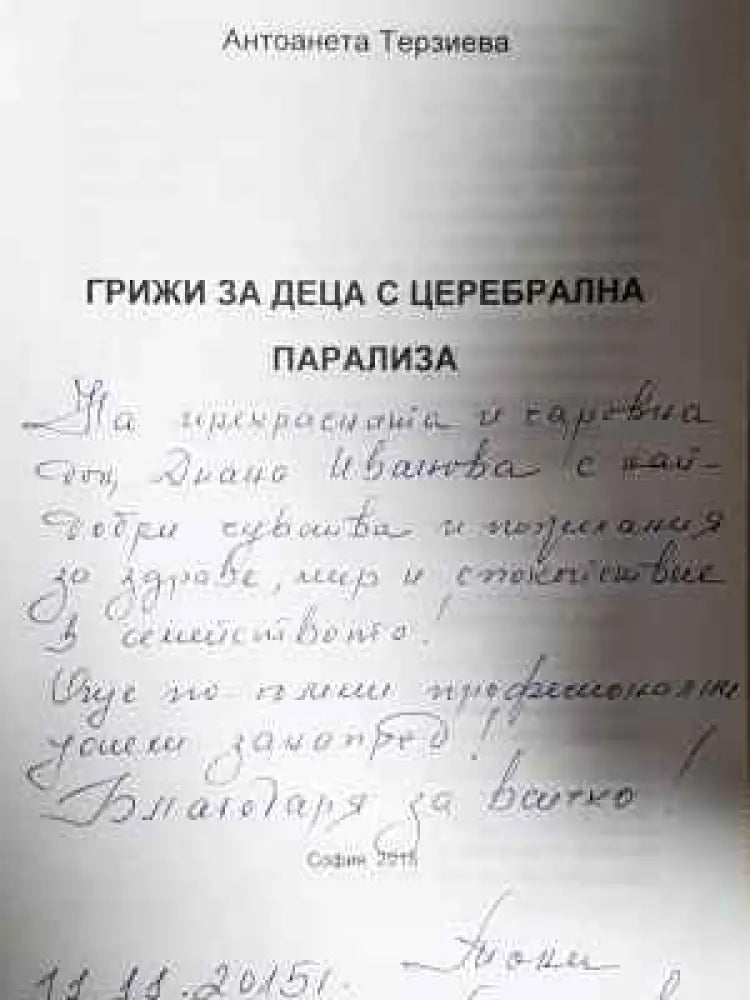 Антоанета Терзиева
ГРИЖИ ЗА ДЕЦА С ЦЕРЕБРАЛНА
ПАРАЛИЗА
На прекрасната и чаровна
доц. Диана Иванова с най-
добри чувства и пожелания
за здраве, мир и спокойствие
в семейството!
Още по големи професионални
успехи занапред!
Благодаря за всичко!
София 2015
11.11.2015г.